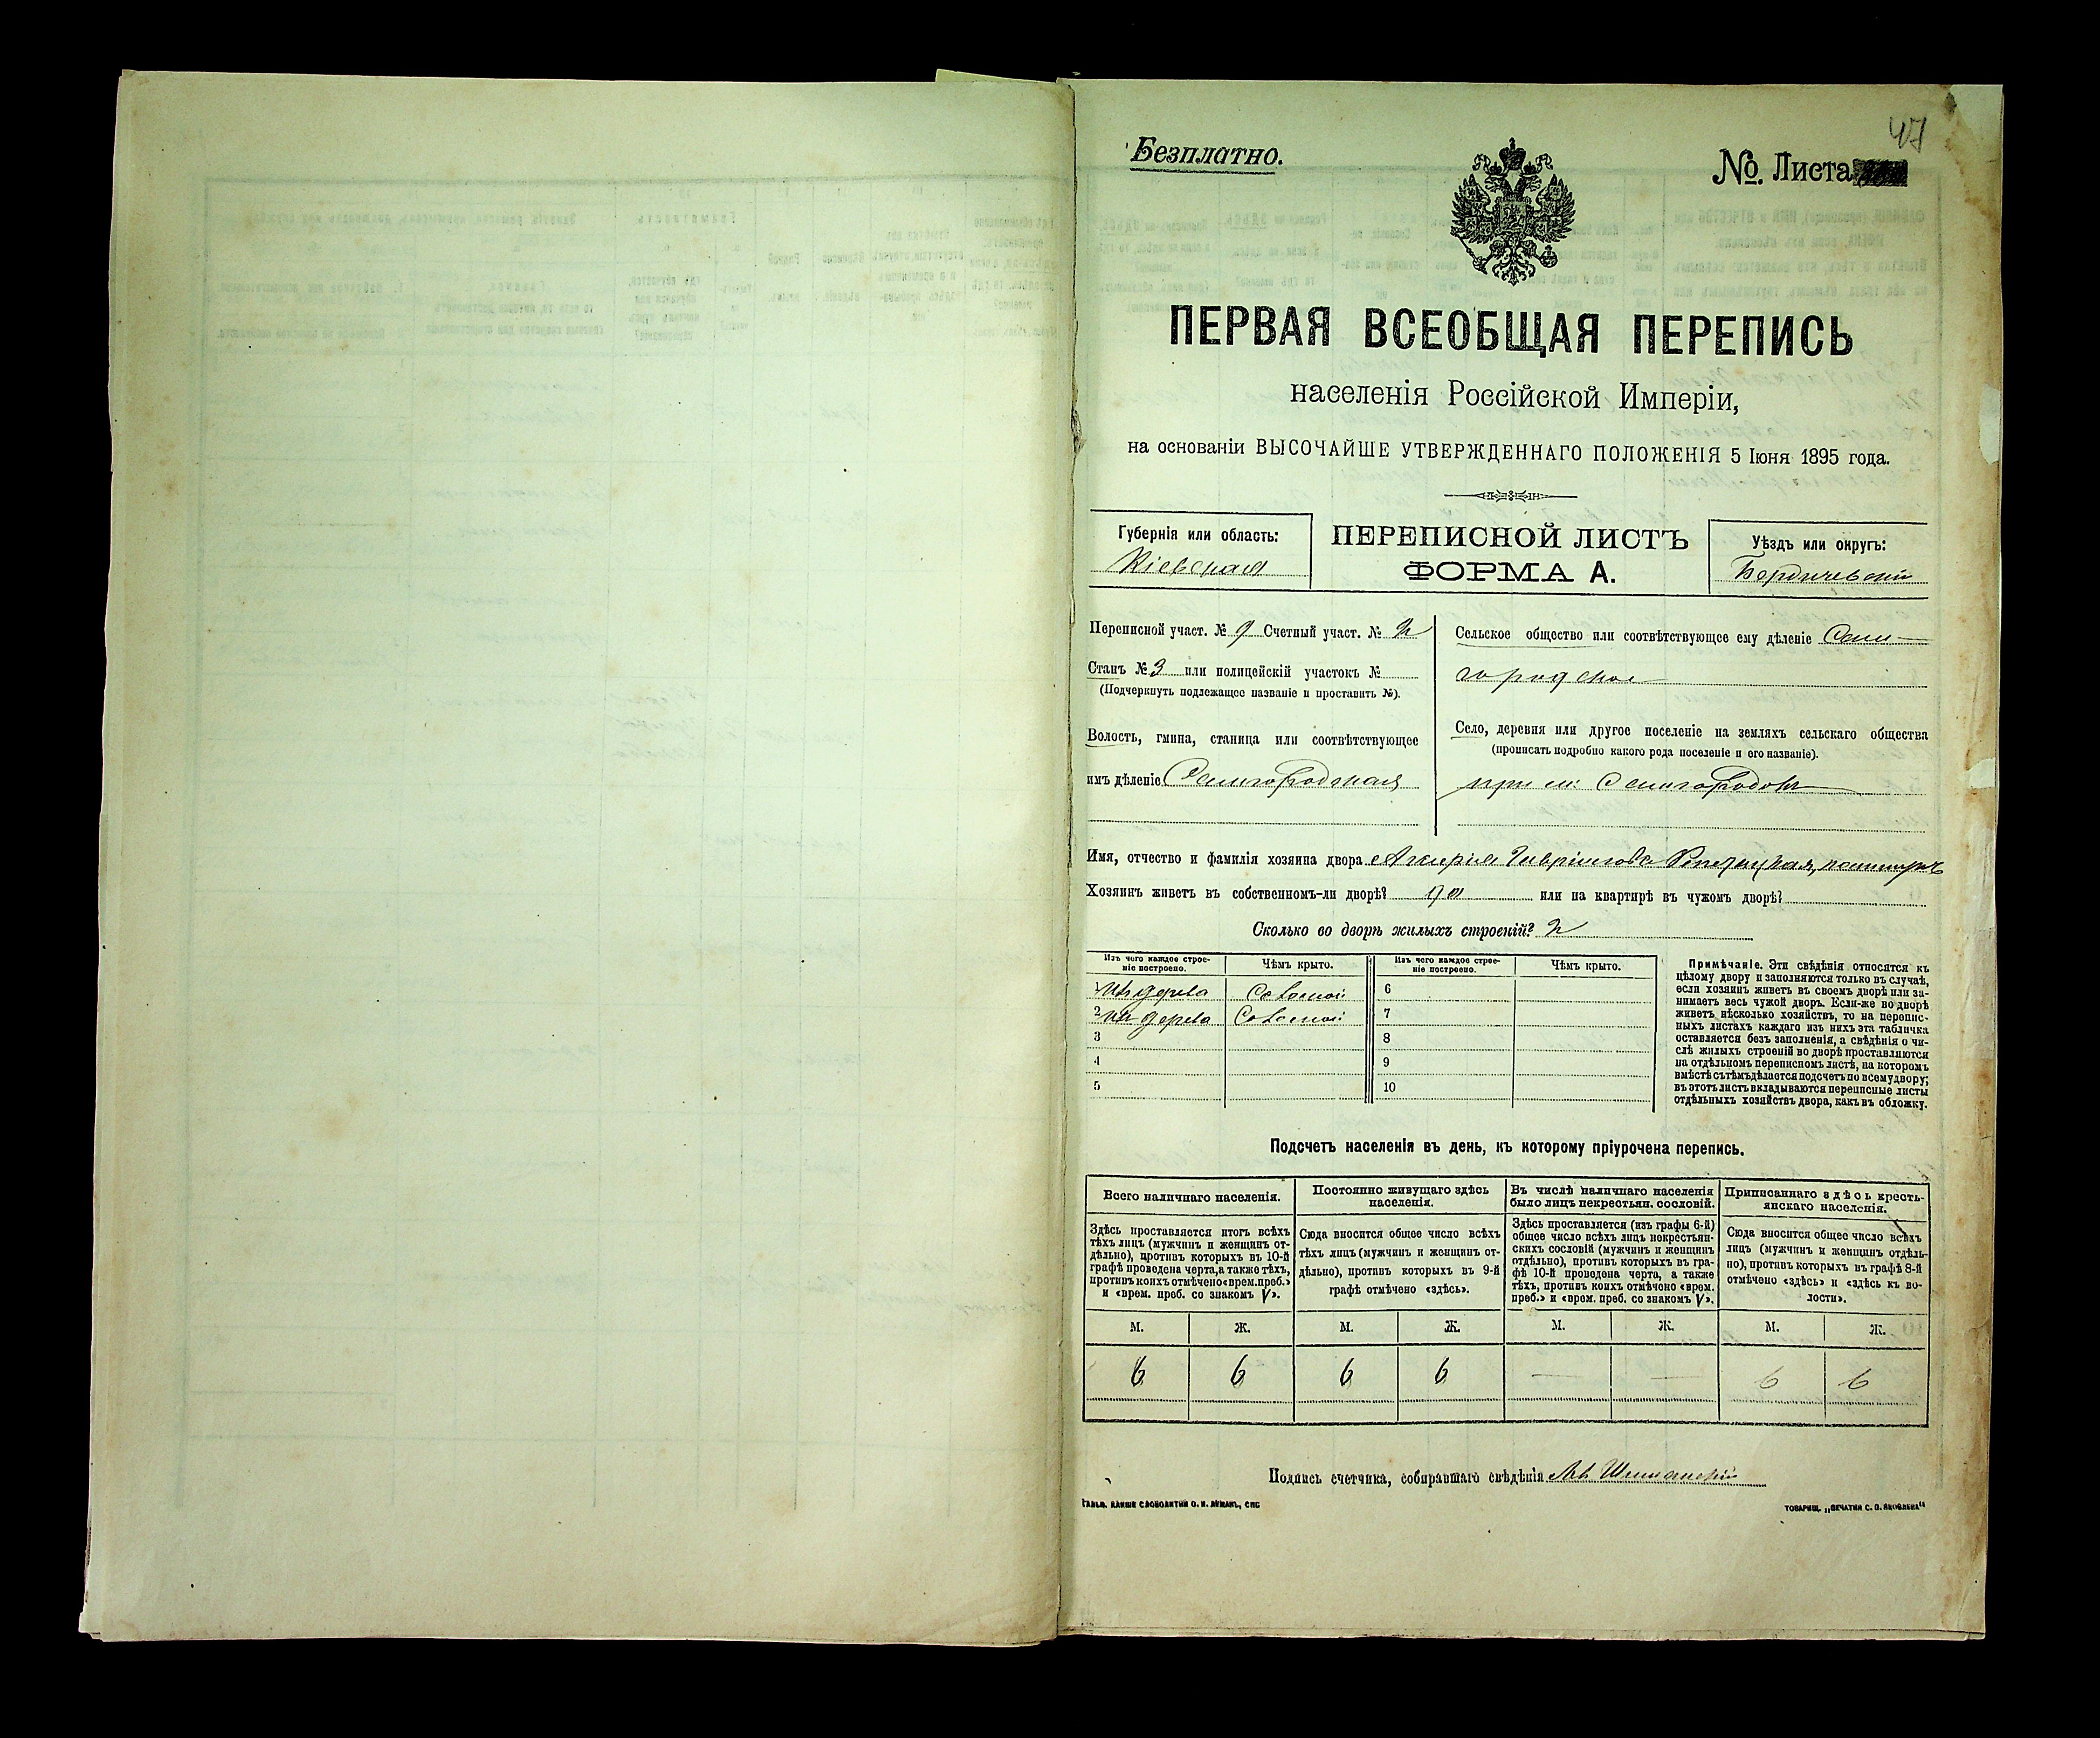 47
Безплатно.
№. Листа
ПЕРВАЯ ВСЕОБЩАЯ ПЕРЕПИСЬ
населенія Россійской Имперіи,
на основаніи ВЫСОЧАЙШЕ УТВЕРЖДЕННАГО ПОЛОЖЕНІЯ 5 Іюня 1895 года.
Губернія или область:
Кіевская
ПЕРЕПИСНОЙ ЛИСТЪ
ФОРМА А.
Уѣздъ или округъ:
Бердичевскій
Переписной участ. № 9 Счетный участ. № 2
Станъ № 3 или полицейскій участокъ №
(Подчеркнуть подлежащее названіе и проставить №).
Волость, гмина, станица или соотвѣтствующее
имъ дѣленіе Самгородская
Сельское общество или соотвѣтствующее ему дѣленіе Сам-
городское
Село, деревня или другое поселеніе на земляхъ сельскаго общества
(прописать подробно какого рода поселеніе и его названіе).
при м. Самгородокъ
Имя, отчество и фамилія хозяина двора
Хозяинъ живетъ въ собственномъ-ли дворѣ? да или на квартирѣ въ чужомъ дворѣ?
Сколько во дворѣ жилыхъ строеній? 2
Изъ чего каждое строе-
ніе построено.
Чѣмъ крыто.
Изъ чего каждое строе-
ніе построено.
Чѣмъ крыто.
1 изъ дерева Соломой 6
2 изъ дерева Соломой 7
3 8
4 9
5 10
Примѣчаніе. Эти свѣдѣнія относятся къ
цѣлому двору и заполняются только въ случаѣ,
если хозяинъ живетъ въ своемъ дворѣ или за-
нимаетъ весь чужой дворъ. Если-же во дворѣ
живетъ нѣсколько хозяйствъ, то на перепис-
ныхъ листахъ каждаго изъ нихъ эта табличка
оставляется безъ заполненія, а свѣдѣнія о чи-
слѣ жилыхъ строеній во дворѣ проставляются
на отдѣльномъ переписномъ листѣ, на которомъ
вмѣстѣ съ тѣмъ дѣлается подсчетъ по всему двору;
въ этотъ листъ вкладываются переписные листы
отдѣльныхъ хозяйствъ двора, какъ въ обложку.
Подсчетъ населенія въ день, къ которому пріурочена перепись.
Всего наличнаго населенія.
Здѣсь проставляется итогъ всѣхъ
тѣхъ лицъ (мужчинъ и женщинъ от-
дѣльно), противъ которыхъ въ 10-й
графѣ проведена черта, а также тѣхъ,
противъ коихъ отмѣчено «врем. преб.»
и «врем. преб. со знакомъ V».
Постоянно живущаго здѣсь
населенія.
Сюда вносится общее число всѣхъ
тѣхъ лицъ (мужчинъ и женщинъ от-
дѣльно), противъ которыхъ въ 9-й
графѣ отмѣчено «здѣсь».
Въ числѣ наличнаго населенія
было лицъ некрестьян. сословій.
Здѣсь проставляется (изъ графы 6-й)
общее число всѣхъ лицъ некрестьян-
скихъ сословій (мужчинъ и женщинъ
отдѣльно), противъ которыхъ въ гра-
фѣ 10-й проведена черта, а также
тѣхъ, противъ коихъ отмѣчено «врем.
преб.» и «врем. преб. со знакомъ V».
Приписаннаго здѣсь кресть-
янскаго населенія.
Сюда вносится общее число всѣхъ
лицъ (мужчинъ и женщинъ отдѣль-
но), противъ которыхъ въ графѣ 8-й
отмѣчено «здѣсь» и «здѣсь въ во-
лости».
М. Ж. М. Ж. М. Ж. М. Ж.
6 6 6 6 — — 6 6
Подпись счетчика, собиравшаго свѣдѣнія
ТОВАРИЩ. „ПЕЧАТНЯ С. П. ЯКОВЛЕВА“